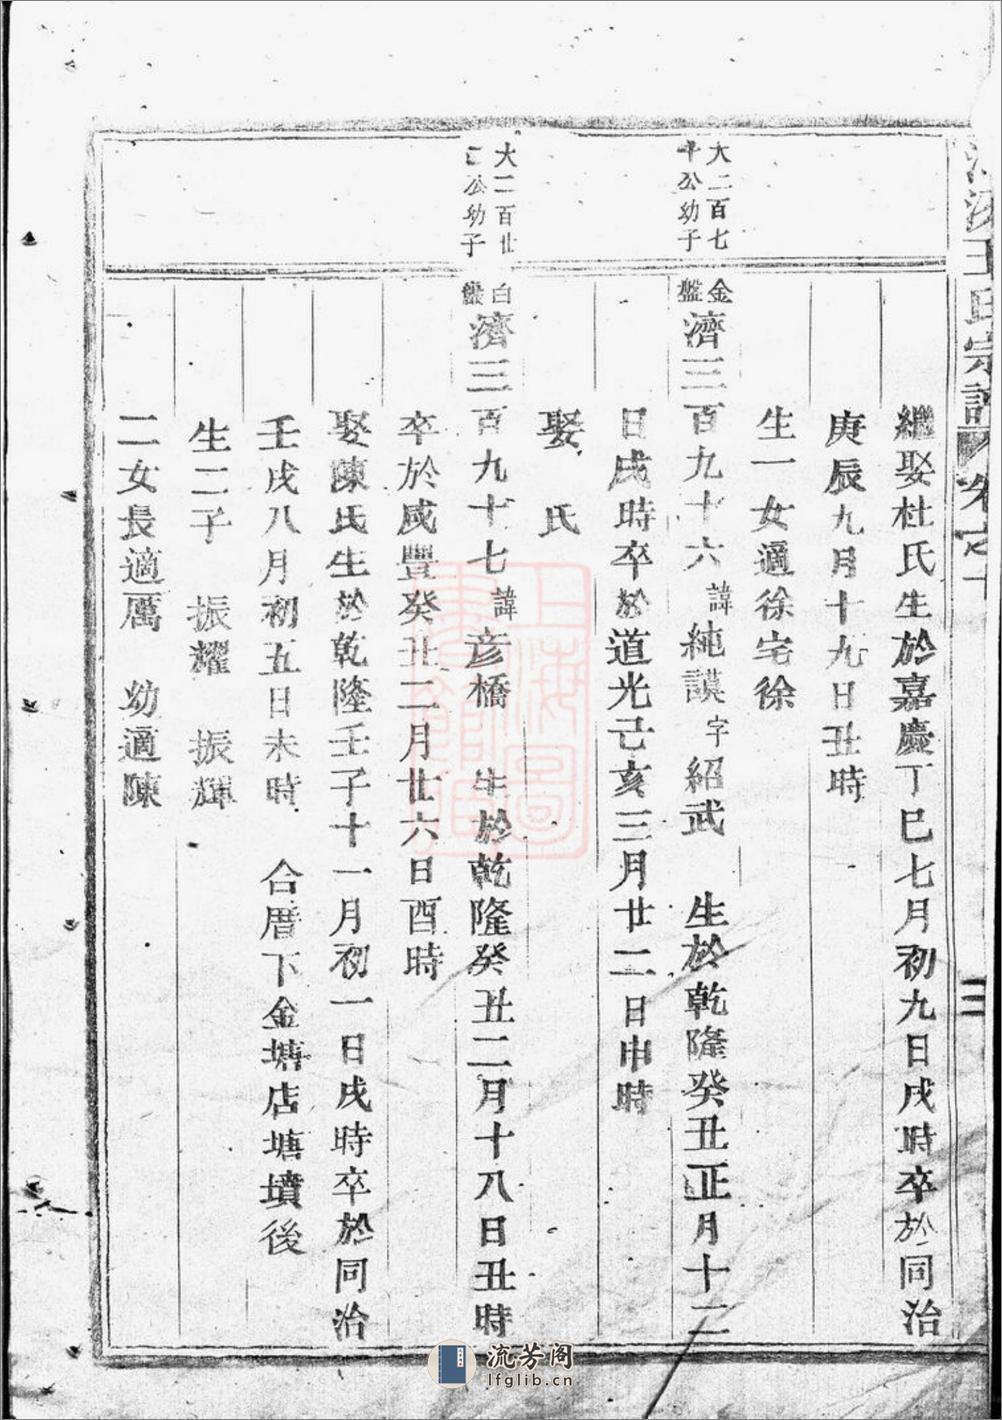 王氏宗譜 卷之十
三
繼娶杜氏生於嘉慶丁巳七月初九日戌時卒於同治
庚辰九月十九日丑時
生一女適徐宅徐
大二百七
公幼子
金
盤
濟三百九十六諱純謨字紹武 生於乾隆癸丑正月十二
日戌時卒於道光己亥三月廿二日申時
娶 氏
大二百廿
公幼子
白
濟三百九十七諱彦橋 生於乾隆癸丑二月十八日丑時
卒於咸豐癸丑二月廿六日酉時
娶陳氏生於乾隆壬子十一月初一日戌時卒於同治
壬戌八月初五日未時 合厝下金塘店塘墳後
生二子 振耀 振輝
二女長適厲 幼適陳
上海圖書館藏
流芳阁
lfglib.cn